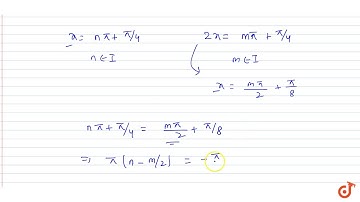 x = nπ + π/4    2x = mπ + π/4
n ∈ I    m ∈ I
x = mπ/2 + π/8
nπ + π/4 = mπ/2 + π/8
⇒ π (n - m/2) = - π